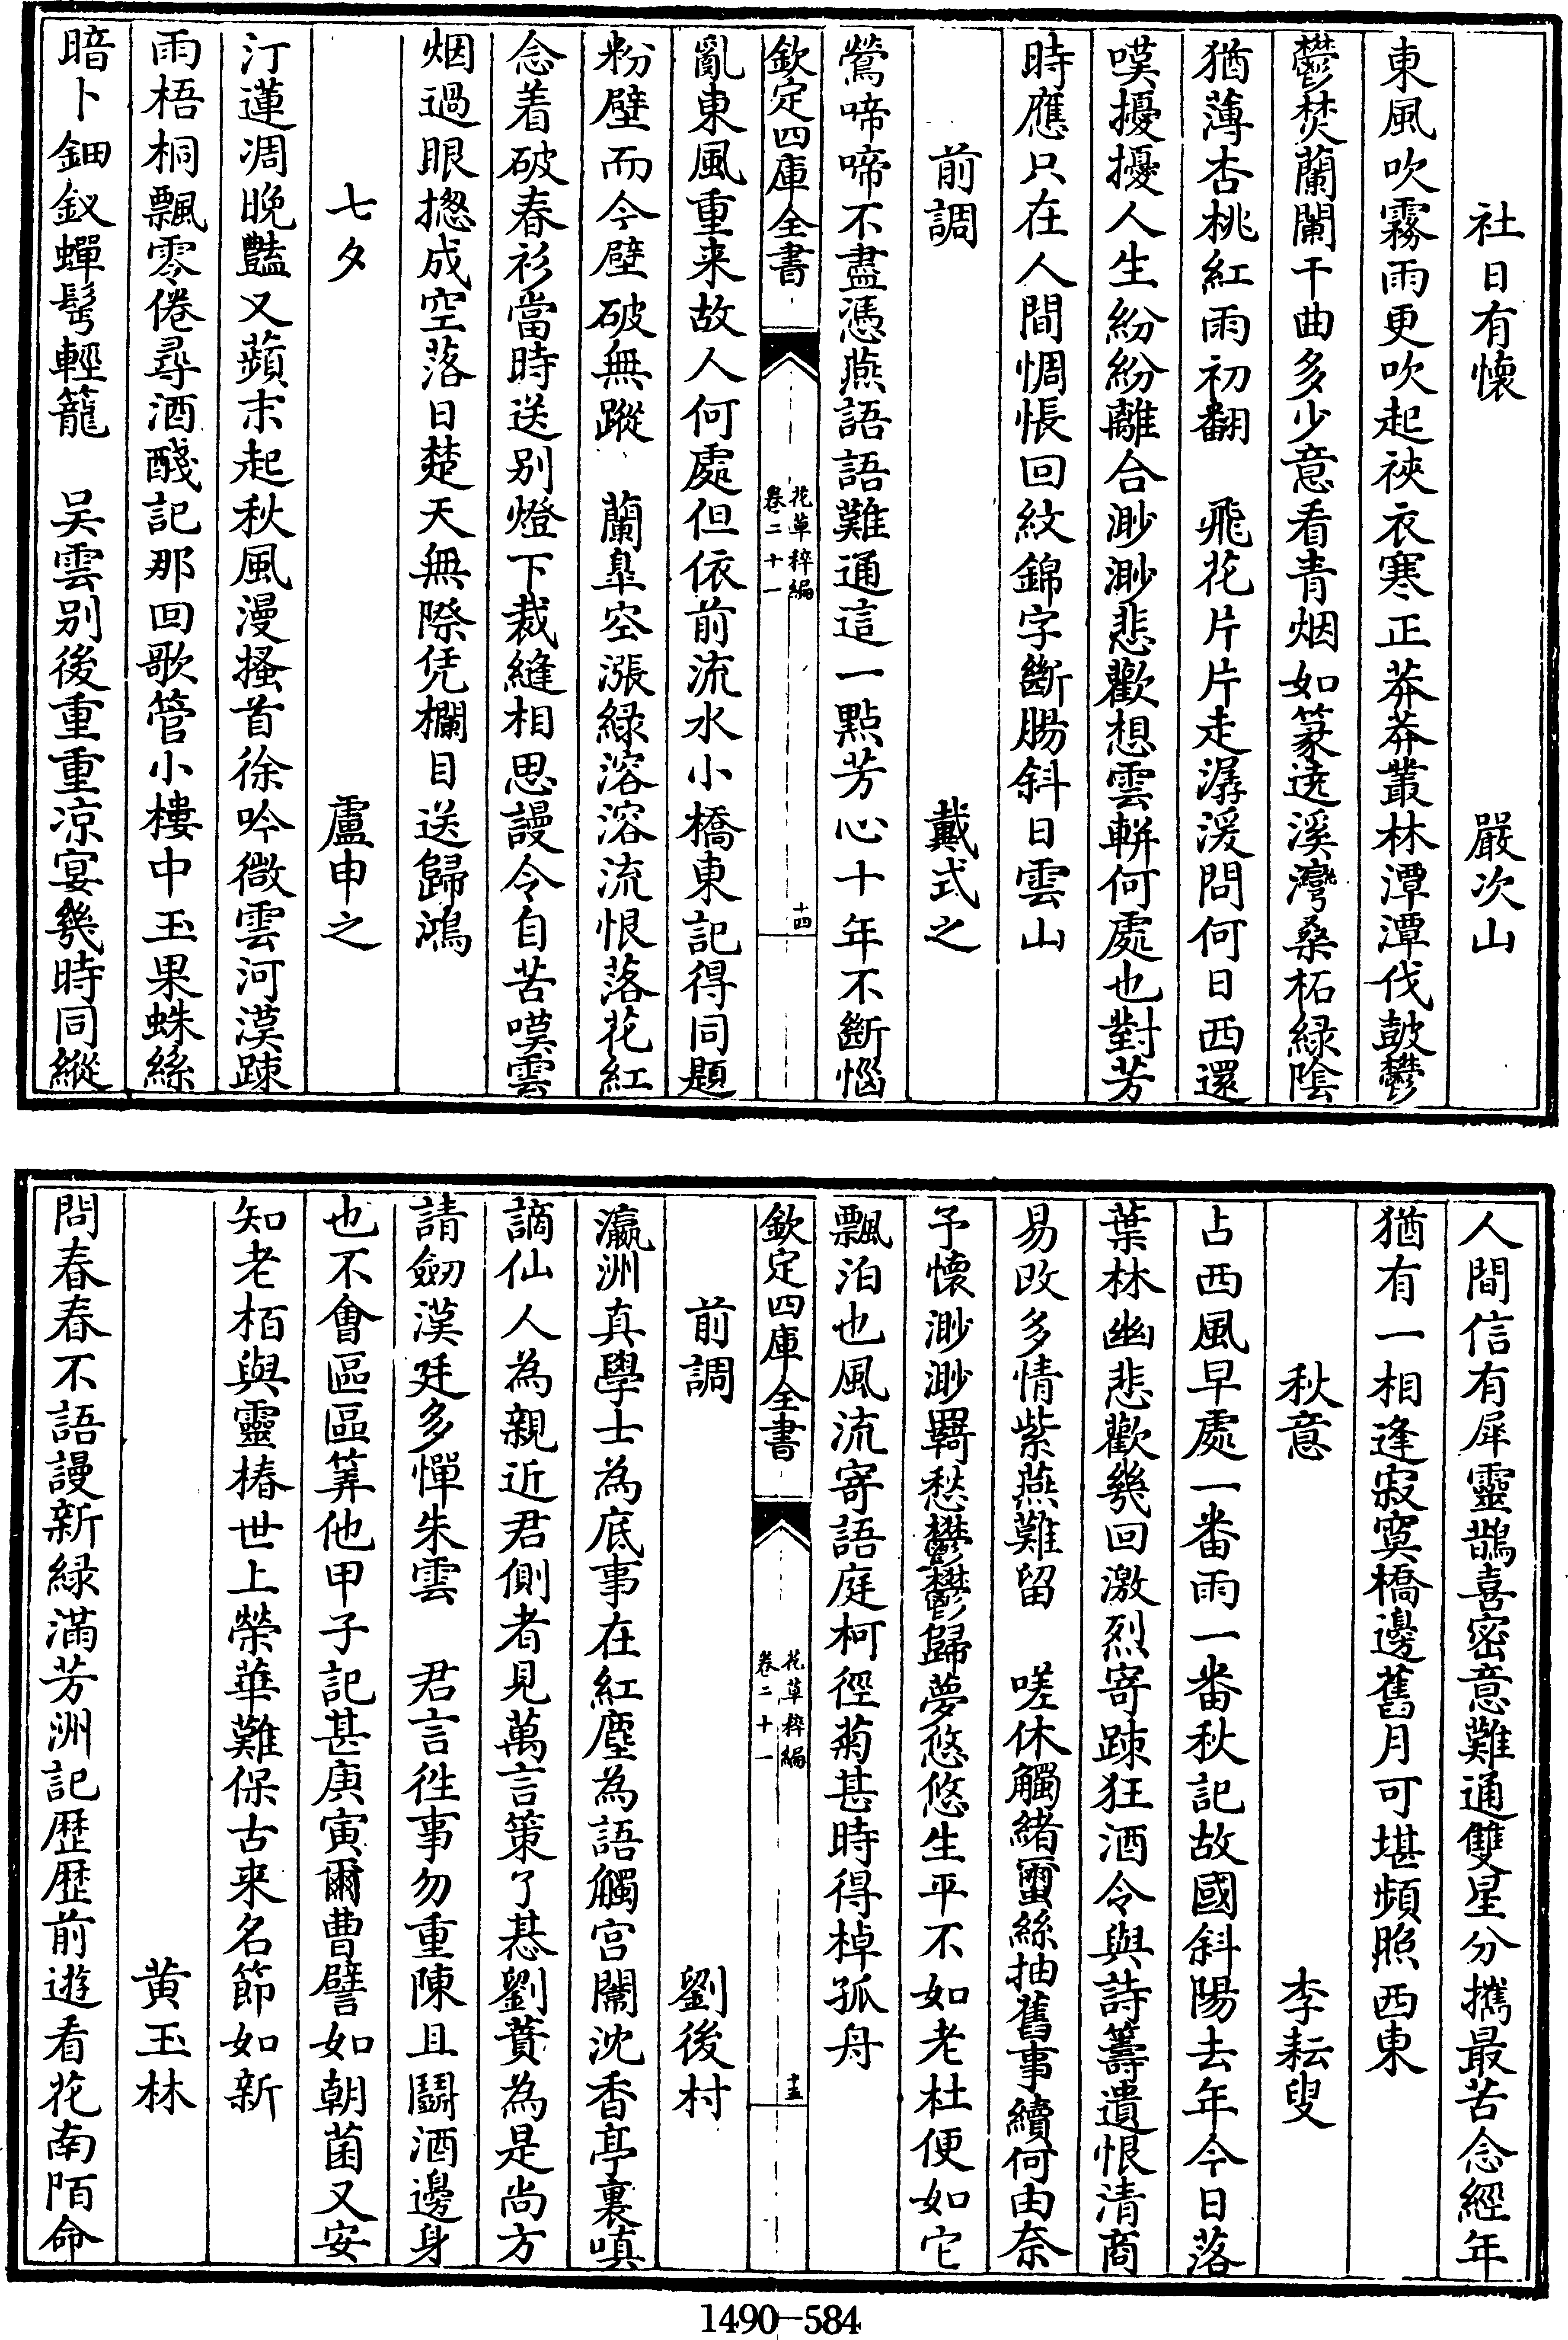 社日有懷　嚴次山
東風吹霧雨更吹起裌衣寒正莽莽叢林潭潭伐鼓鬱
鬱焚蘭闌干曲多少意看青烟如篆遶溪灣桑柘緑陰
猶薄杏桃紅雨初翻　飛花片片走潺湲問何日西還
嘆擾擾人生紛紛離合渺渺悲歡想雲軿何處也對芳
時應只在人間惆悵回紋錦字斷腸斜日雲山
前調　戴式之
鶯啼啼不盡憑燕語語難通這一點芳心十年不斷惱
欽定四庫全書
花草稡編
卷二十一
十四
亂東風重来故人何處但依前流水小橋東記得同題
粉壁而今壁破無蹤　蘭臯空漲緑溶溶流恨落花紅
念着破春衫當時送别燈下裁縫相思謾令自苦嘆雲
烟過眼揔成空落日楚天無際凭欄目送歸鴻
七夕　盧申之
汀蓮凋晩豔又蘋末起秋風漫搔首徐吟微雲河漢疎
雨梧桐飄零倦尋酒醆記那回歌管小樓中玉果蛛絲
暗卜鈿釵蟬髩輕籠　吴雲别後重重凉宴幾時同縱
人間信有犀靈鵲喜密意難通雙星分攜最苦念經年
猶有一相逢寂寞橋邊舊月可堪頻照西東
秋意　李耘叟
占西風早處一番雨一番秋記故國斜陽去年今日落
葉林幽悲歡幾回激烈寄疎狂酒令與詩籌遺恨清商
易改多情紫燕難留　嗟休觸緒䖟絲抽舊事續何由奈
予懷渺渺羈愁鬱鬱歸夢悠悠生平不如老杜便如它
飄泊也風流寄語庭柯徑菊甚時得棹孤舟
欽定四庫全書
花草稡編
卷二十一
十五
前調　劉後村
瀛洲真學士為底事在紅塵為語觸宫闈沈香亭裏嗔
謫仙人為親近君側者見萬言策了惎劉蕡為是尚方
請劒漢廷多憚朱雲　君言徃事勿重陳且鬭酒邊身
也不會區區筭他甲子記甚庚寅爾曹譬如朝菌又安
知老栢與靈椿世上榮華難保古来名節如新
黄玉林
問春春不語謾新緑滿芳洲記歴歴前遊看花南陌命
1490-584